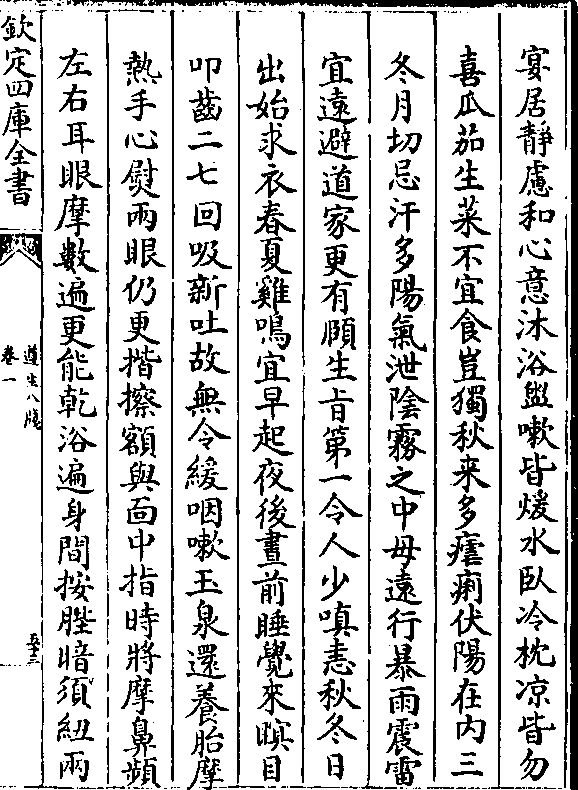 宴居靜慮和心意沐浴盥嗽皆煖水臥冷枕凉皆勿
喜瓜茄生菜不宜食豈獨秋来多瘧痢伏陽在内三
冬月切忌汗多陽氣泄陰霧之中毋遠行暴雨震雷
宜遠避道家更有頤生旨第一令人少嗔恚秋冬日
出始求衣春夏雞鳴宜早起夜後晝前睡覺來瞑目
叩齒二七回吸新吐故無令緩咽嗽玉泉還養胎摩
熱手心熨兩眼仍更揩擦額與面中指時將摩鼻頻
左右耳眼摩數遍更能乾浴遍身間按䏶暗須紐兩
欽定四庫全書
遵生八牋
卷一